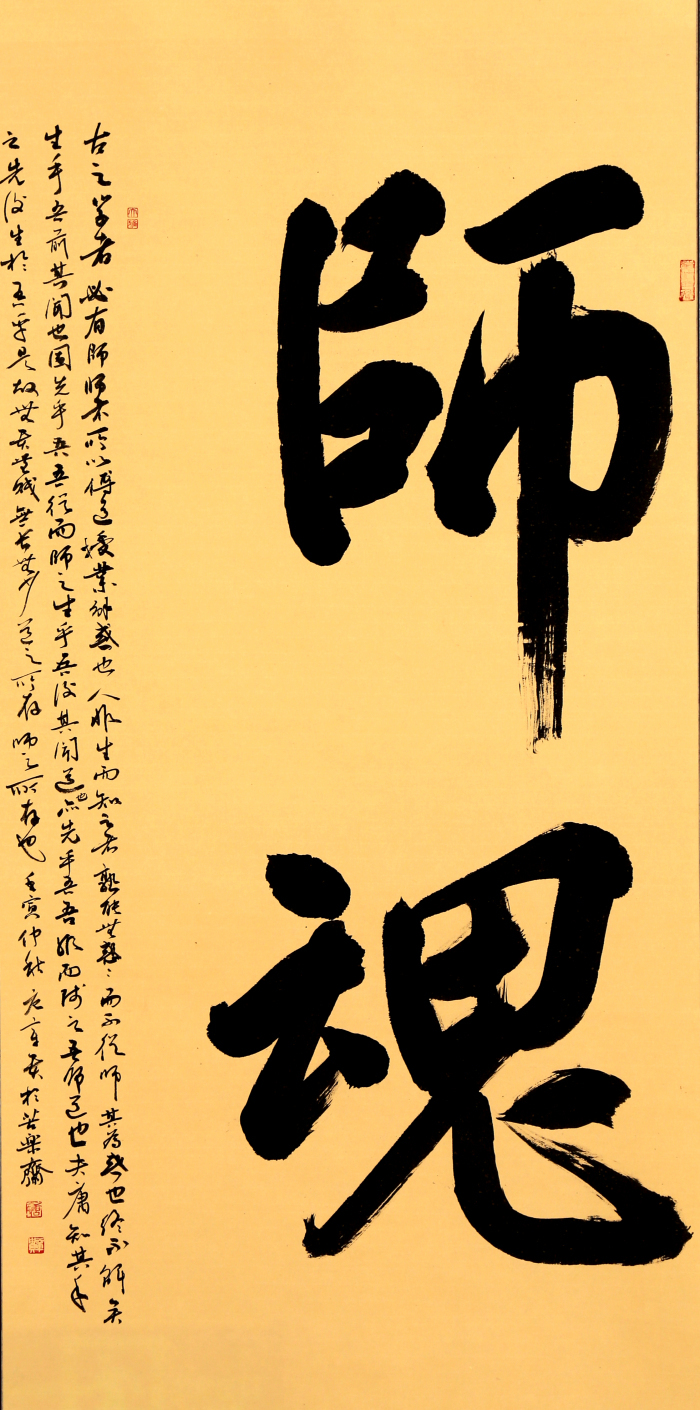 師魂
古之学者必有師師者所以傳道授業解惑也人非生而知之者孰能無惑惑而不從師其為惑也終不解矣
生乎吾前其聞也固先乎吾吾從而師之生乎吾後其聞道也亦先乎吾吾從而師之吾師道也夫庸知其年
之先後生於吾乎是故無貴無賤無長無少道之所存師之所存也壬寅仲秋於苦樂齋